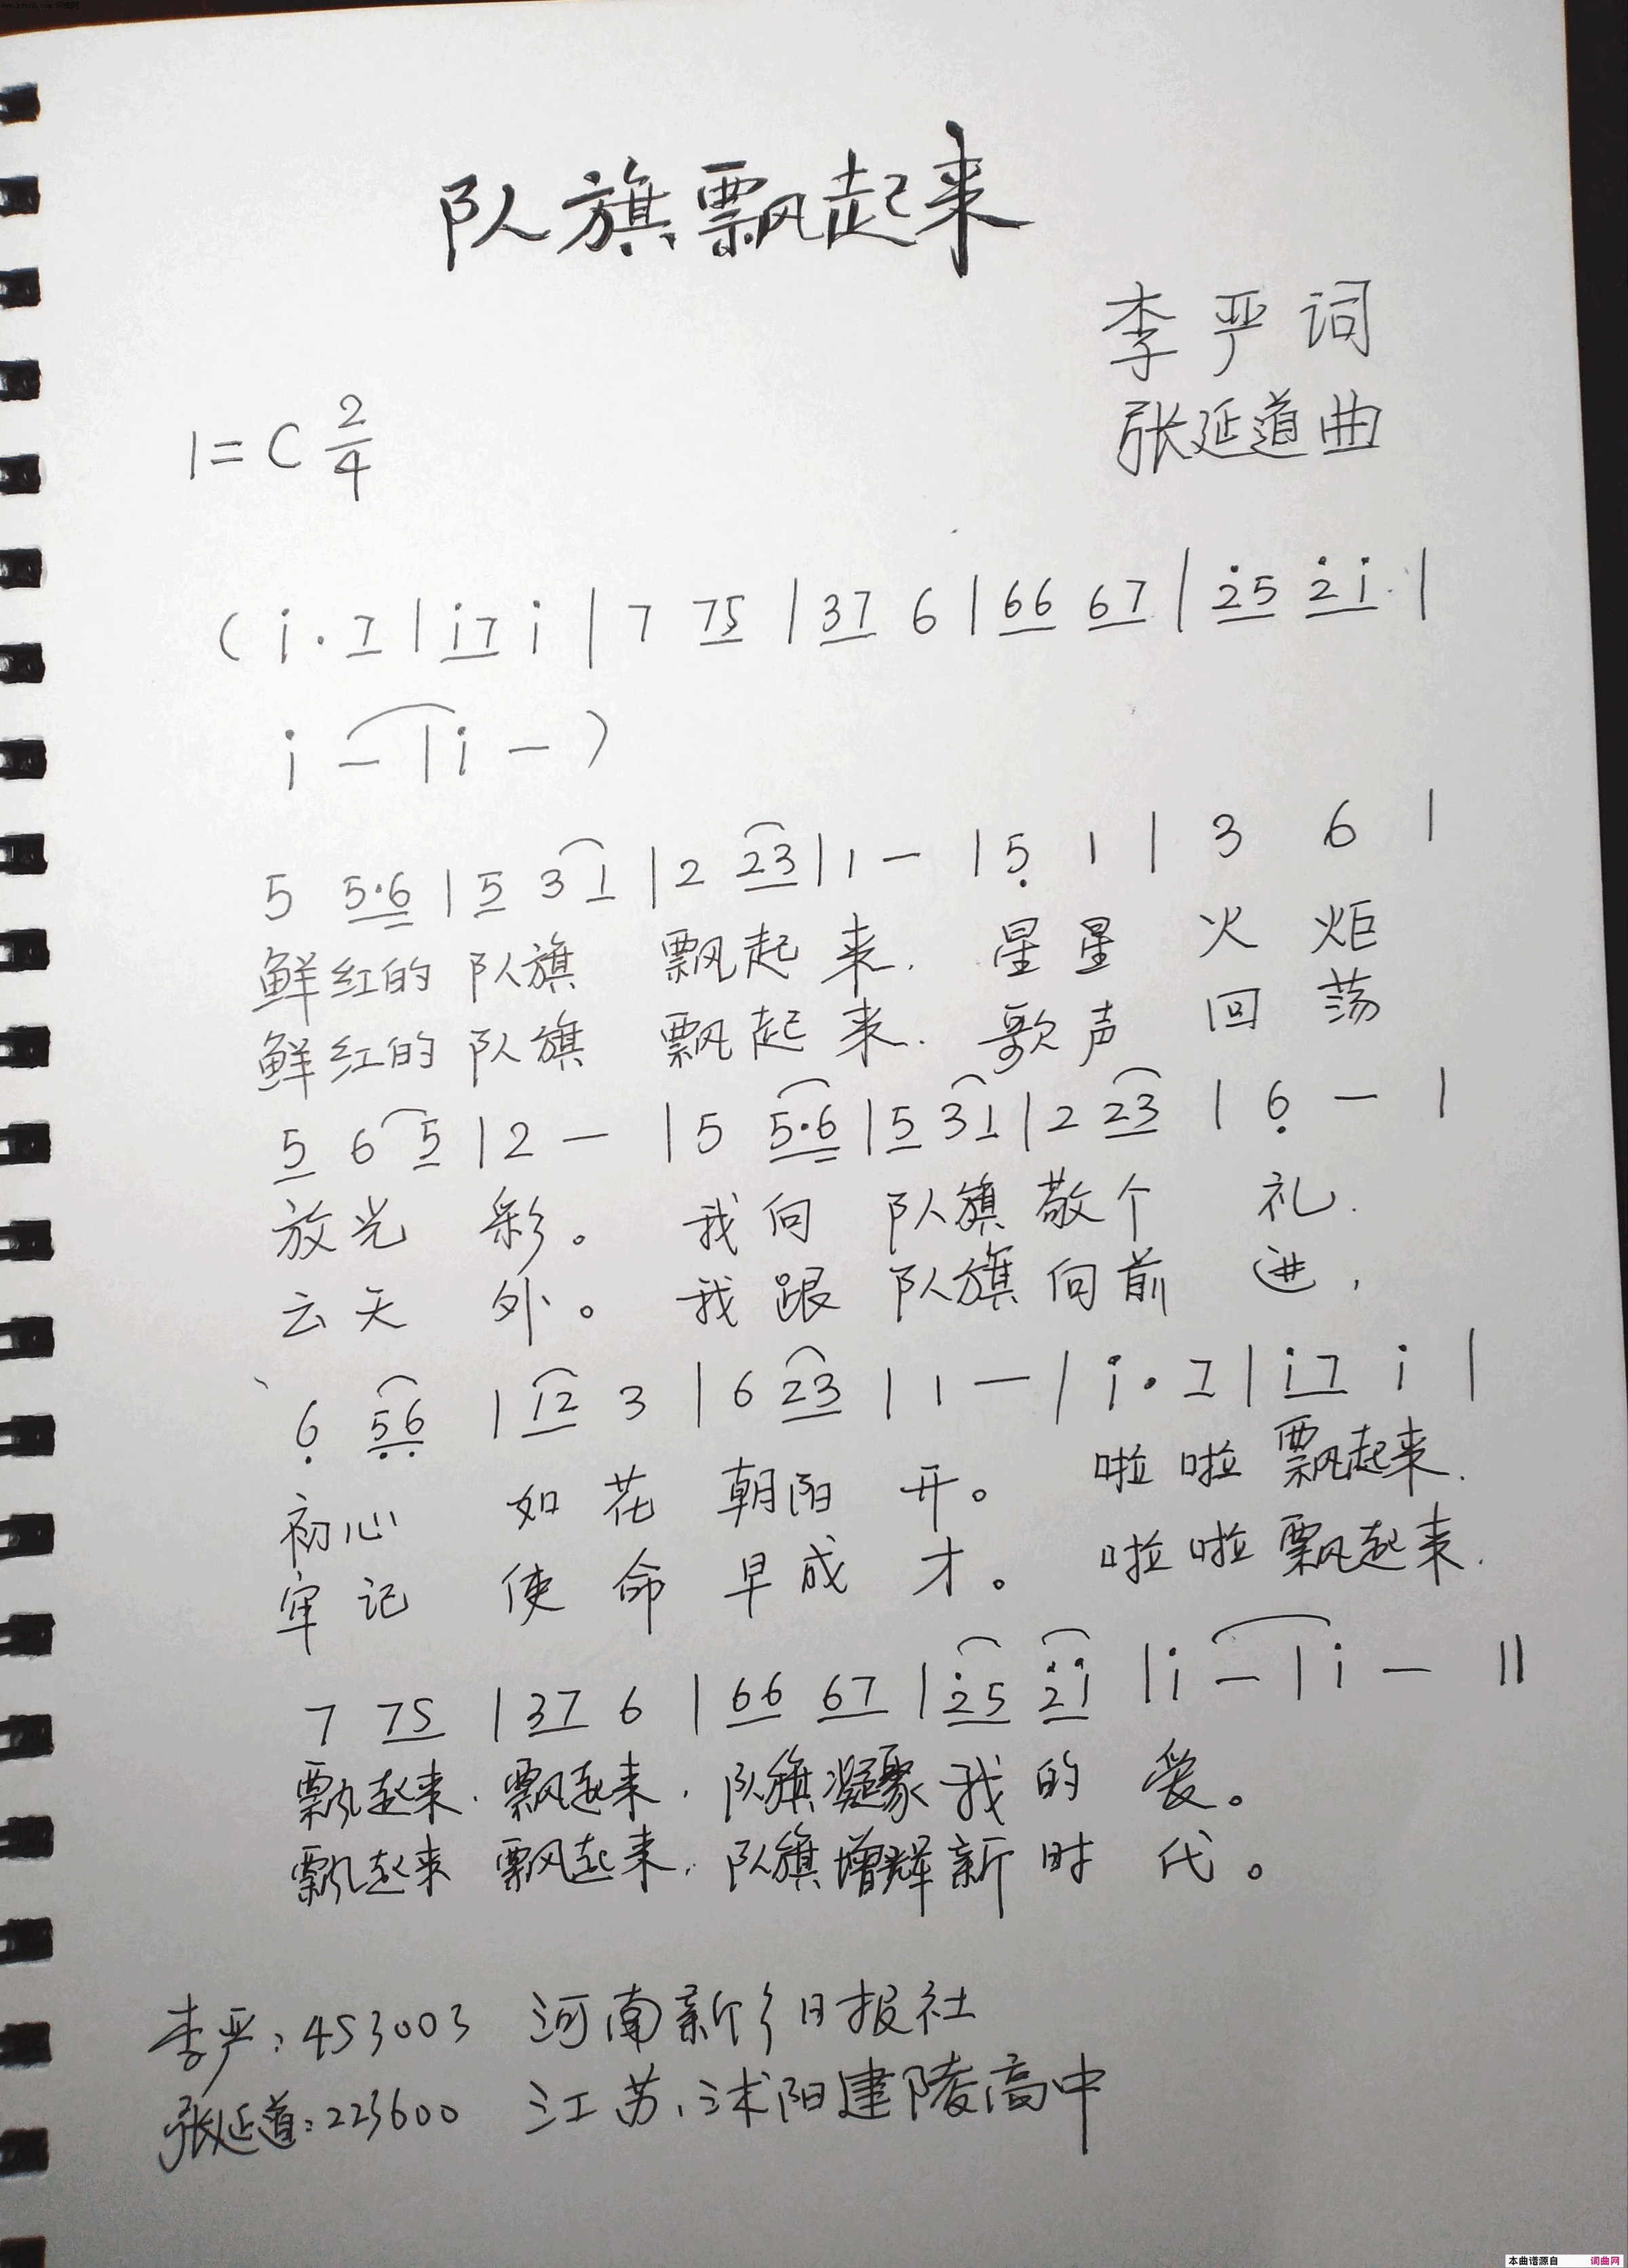 队旗飘起来
李严词
张延道曲
1=C 2/4
( i̇ . 7 | i̇7 i̇ | 7 75 | 37 6 | 66 67 | 2̇5 2̇i̇ |
i̇ — | i̇ — )
5 5·6 | 5 3 1 | 2 23 | 1 — | 5̣ 1 | 3 6 |
鲜红的 队旗 飘起来. 星星 火 炬
鲜红的 队旗 飘起来. 歌声 回 荡
5 6 5 | 2 — | 5 5·6 | 5 3 1 | 2 23 | 6̣ — |
放光 彩。 我向 队旗敬个 礼.
云天 外。 我跟 队旗向前 进,
6̣ 5̣6̣ | 12 3 | 6 23 | 1 — | i̇ . 7 | i̇7 i̇ |
初心 如花 朝阳 开。 啦啦 飘起来.
牢记 使命 早成 才。 啦啦 飘起来.
7 75 | 37 6 | 66 67 | 2̇5 2̇i̇ | i̇ — | i̇ — ‖
飘起来. 飘起来. 队旗凝聚我的 爱。
飘起来 飘起来. 队旗增辉新时 代。
李严: 453003 河南新乡日报社
张延道: 223600 江苏、沭阳建陵高中
本曲谱源自 词曲网